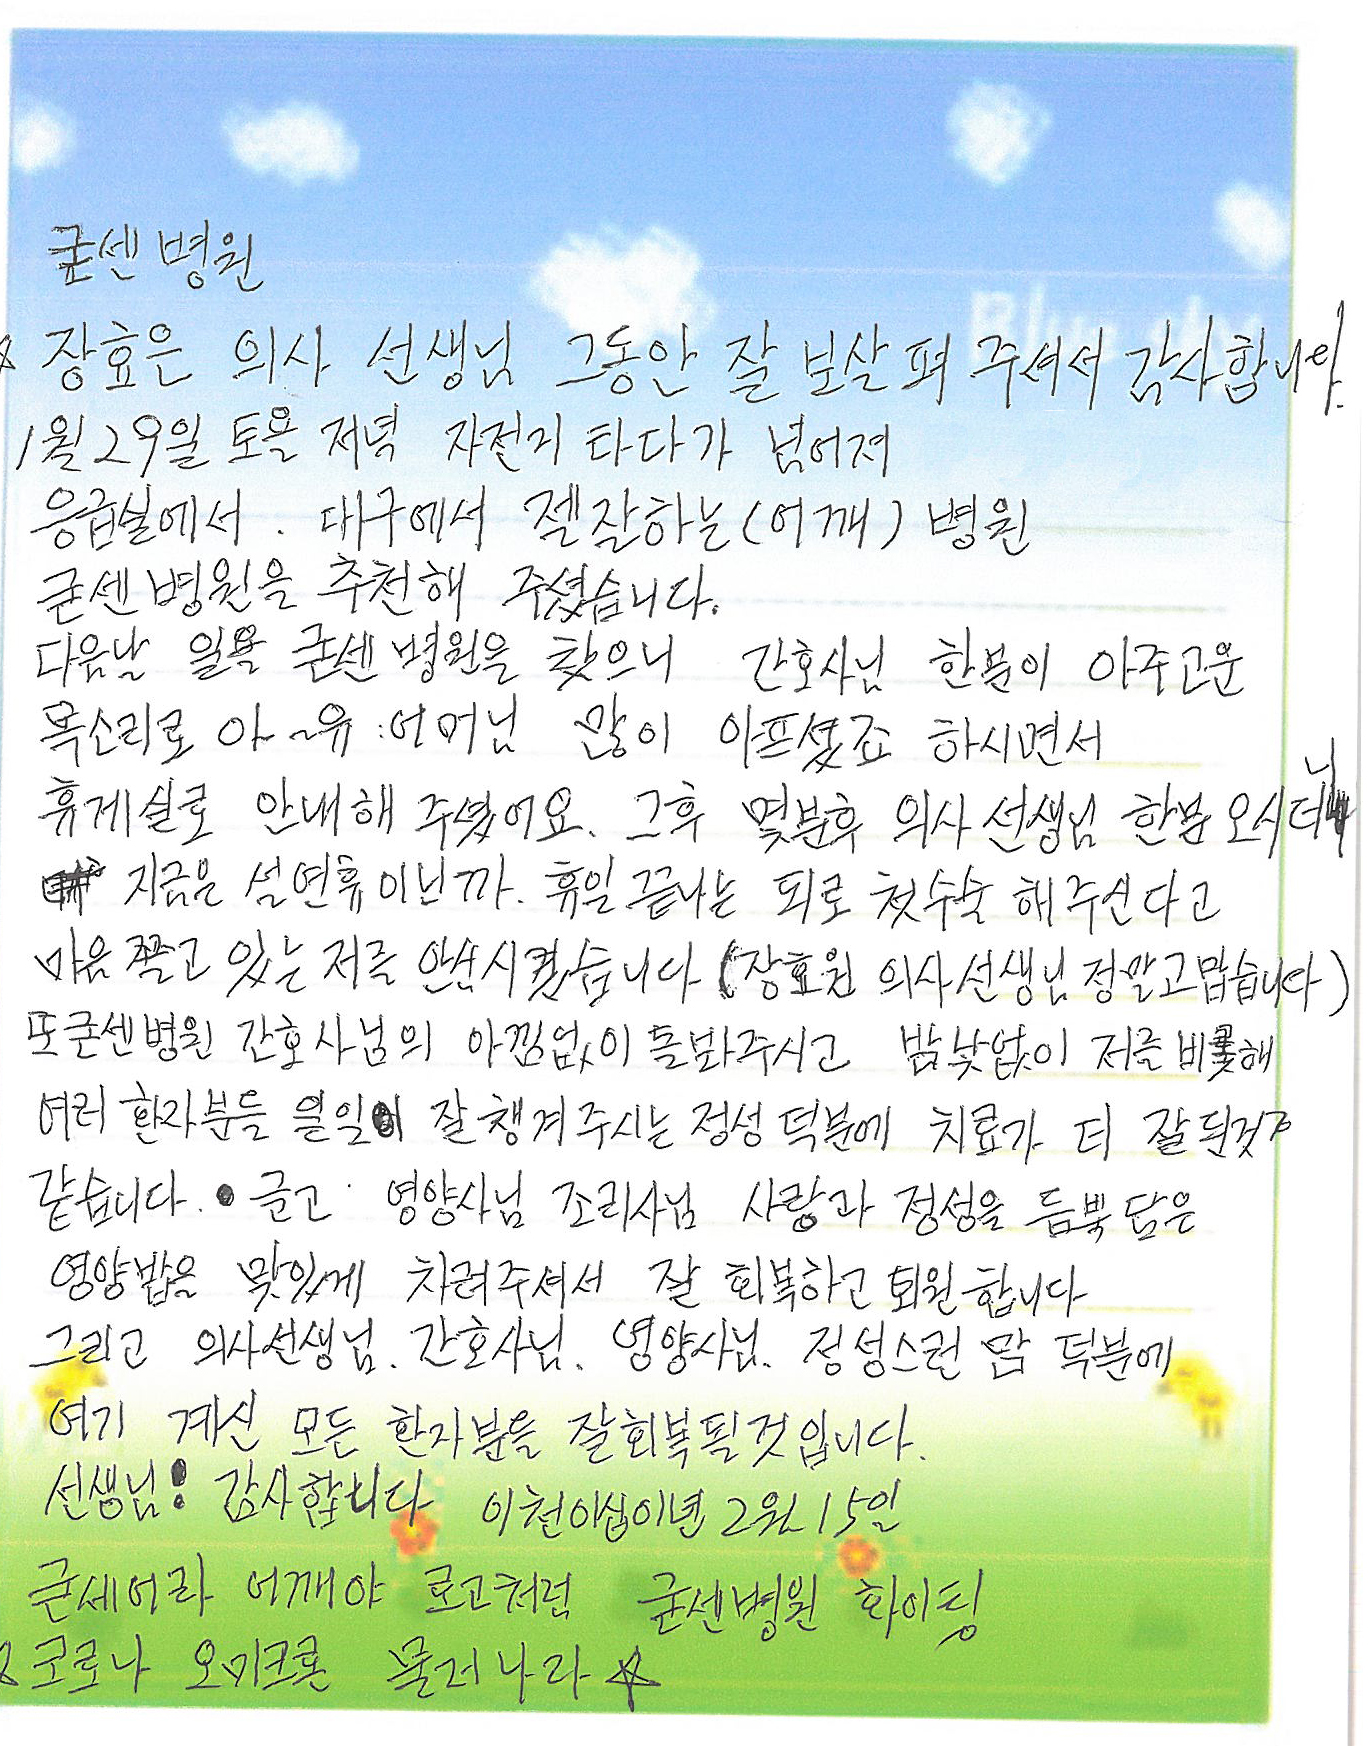 굳센병원
☆ 장효은 의사 선생님 그동안 잘 보살펴 주셔서 감사합니다.
Blue sky
1월 29일 토욜 저녁 자전거 타다가 넘어져
응급실에서. 대구에서 젤잘하는(어깨) 병원
굳센병원을 추천해 주셨습니다.
다음날 일욜 굳센병원을 찾으니 간호사님 한분이 아주고운
목소리로 아~유 어머님 많이 아프셨죠 하시면서
휴게실로 안내해 주셨어요. 그후 몇분후 의사선생님 한분 오시더니
지금은 설연휴이닌까. 휴일끝나는 뒤로 첫수술 해주신다고
마음 쫄고 있는 저를 안심시켰습니다 (장효원 의사선생님 정말고맙습니다)
또굳센병원 간호사님의 아낌없이 돌봐주시고 밤낮없이 저를 비롯해
여러 환자분들 일일이 잘챙겨주시는 정성 덕분에 치료가 더 잘된것
같습니다. 글고 영양사님 조리사님 사랑과 정성을 듬뿍 담은
영양밥을 맛있게 차려주셔서 잘 회복하고 퇴원합니다
그리고 의사선생님. 간호사님. 영양사님. 정성스런 맘 덕분에
여기 계신 모든 환자분들 잘회복될것입니다.
선생님! 감사합니다 이천이십이년 2월 15일
굳세어라 어깨야 로고처럼 굳센병원 화이팅
☆ 코로나 오미크론 물러나라 ☆